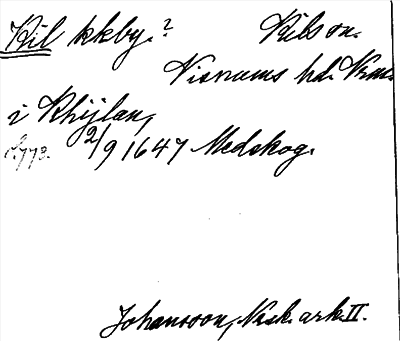 Kil kkby.? Kils sn.
Visnums hd. Vrml.
i Khijlan,
S. 773. 2/9 1647 Medskog.
Johansson, Nsk. ark. II.